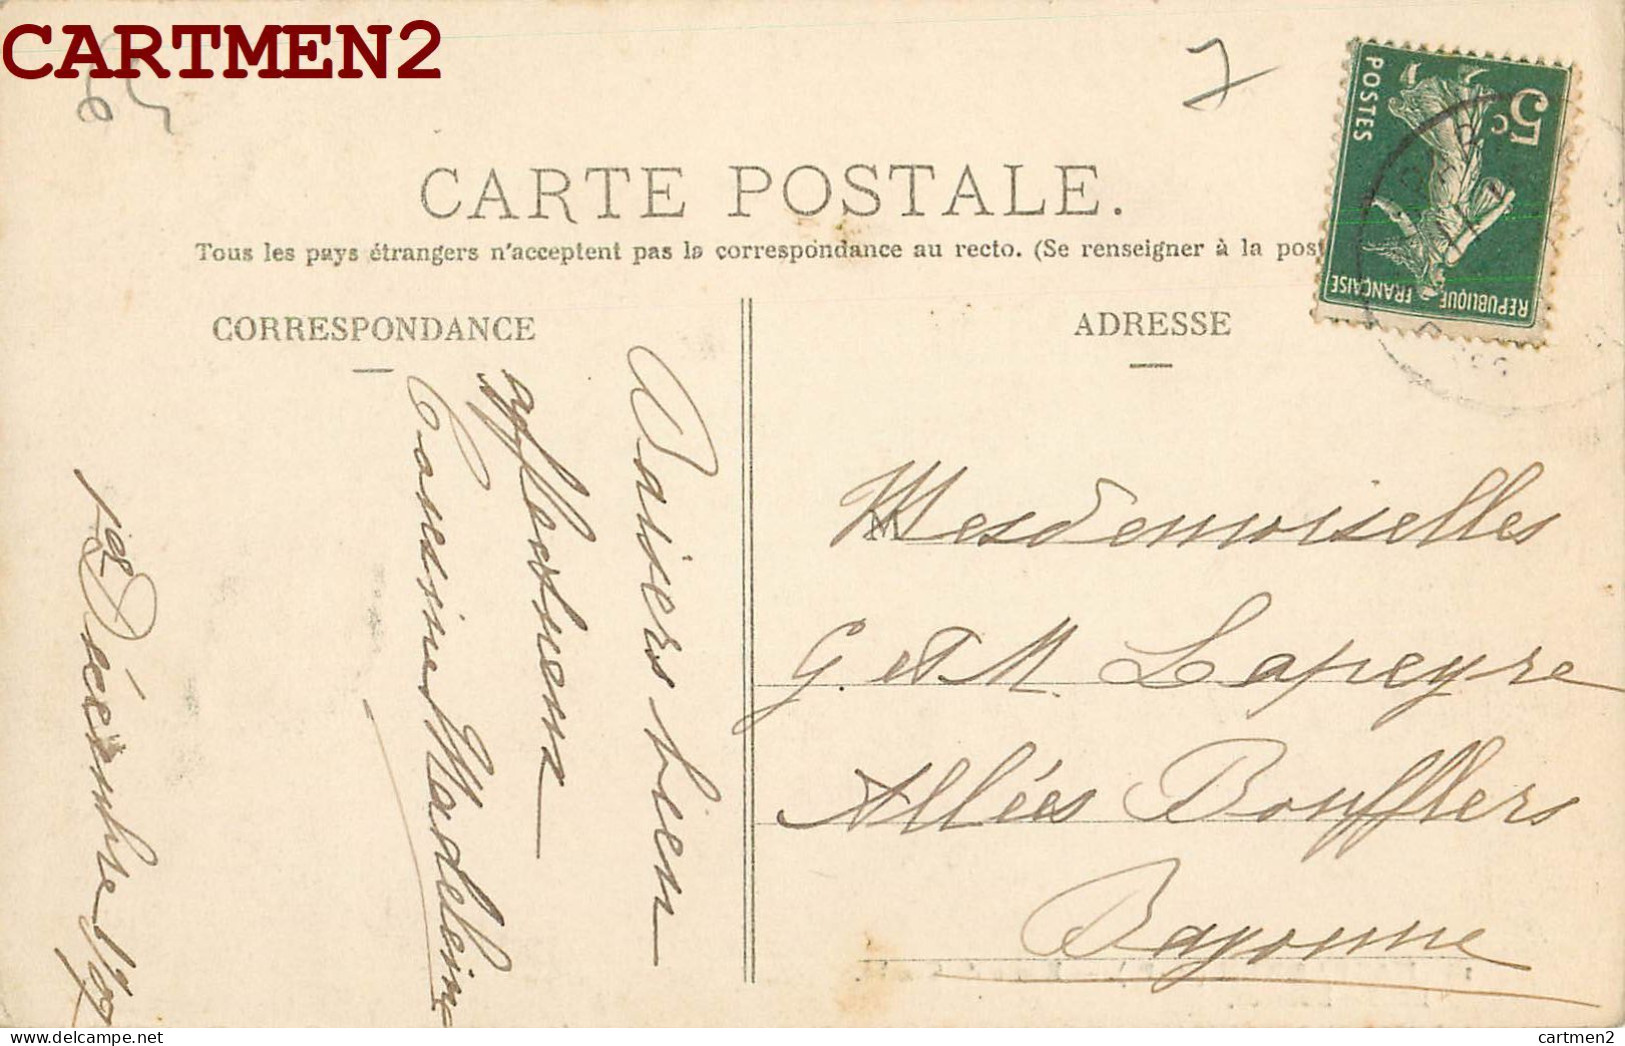 CARTMEN2
7
CARTE POSTALE.
Tous les pays étrangers n'acceptent pas la correspondance au recto. (Se renseigner à la post
CORRESPONDANCE
ADRESSE
5c
POSTES
REPUBLIQUE FRANÇAISE
Baisers bien
affectueux
Cousine Madeleine
1er Décembre
Mesdemoiselles
G. et M. Lapeyre
Allées Boufflers
Bayonne
cartmen2